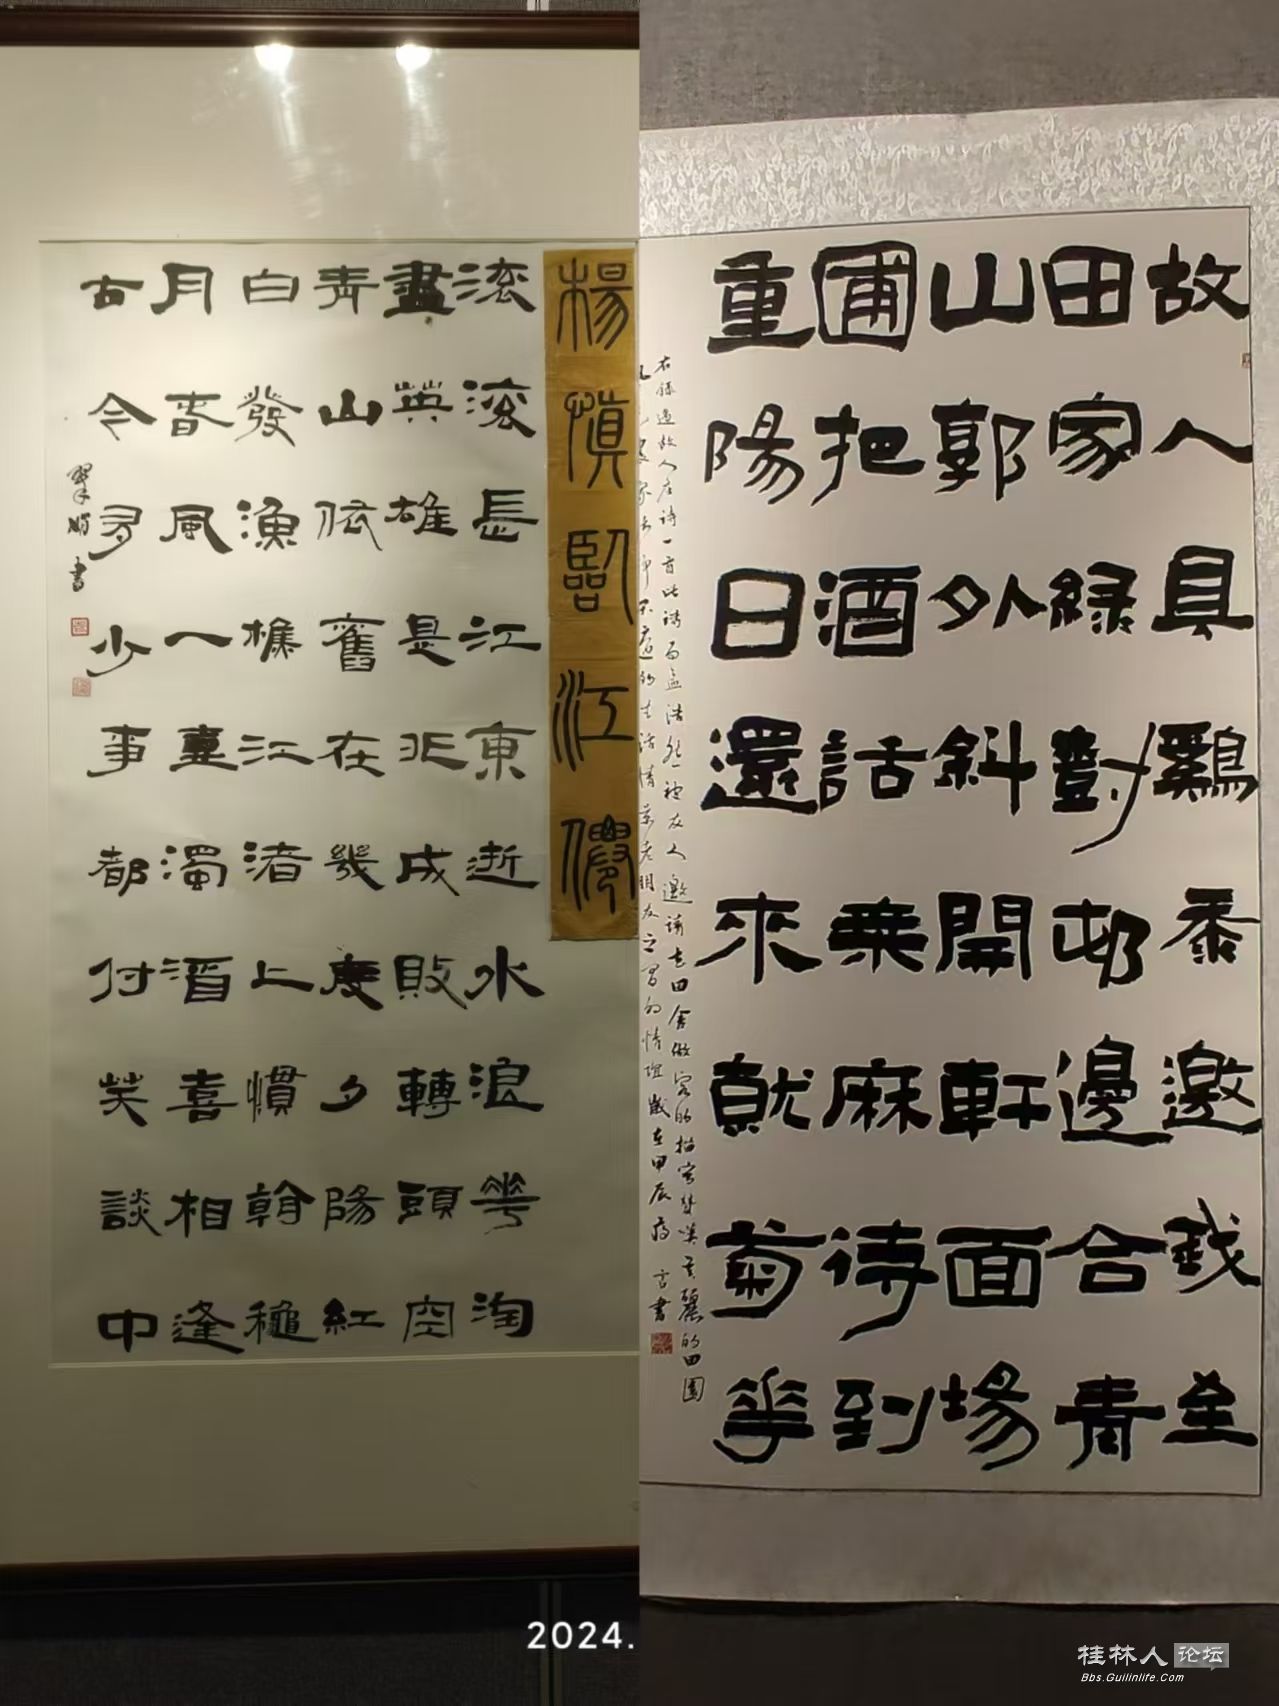 楊慎臨江僊
滚滚長江東逝水浪華淘
盡英雄是非成敗轉頭空
青山依舊在幾度夕陽紅
白發漁樵江渚上慣看龝
月春風一壺濁酒喜相逢
古今多少事都付笑談中
書
故人具鷄黍邀我至
田家緑對邨邊合青
山郭外斜開軒面場
圃把酒話桒麻待到
重陽日還來就菊華
右録過故人庄诗一首此诗为孟浩然被友人邀请去田舍做客的描寫美麗的田園
生活情景老朋友之間的情谊歲在甲辰 書
2024.
桂林人论坛
Bbs.Guilinlife.com